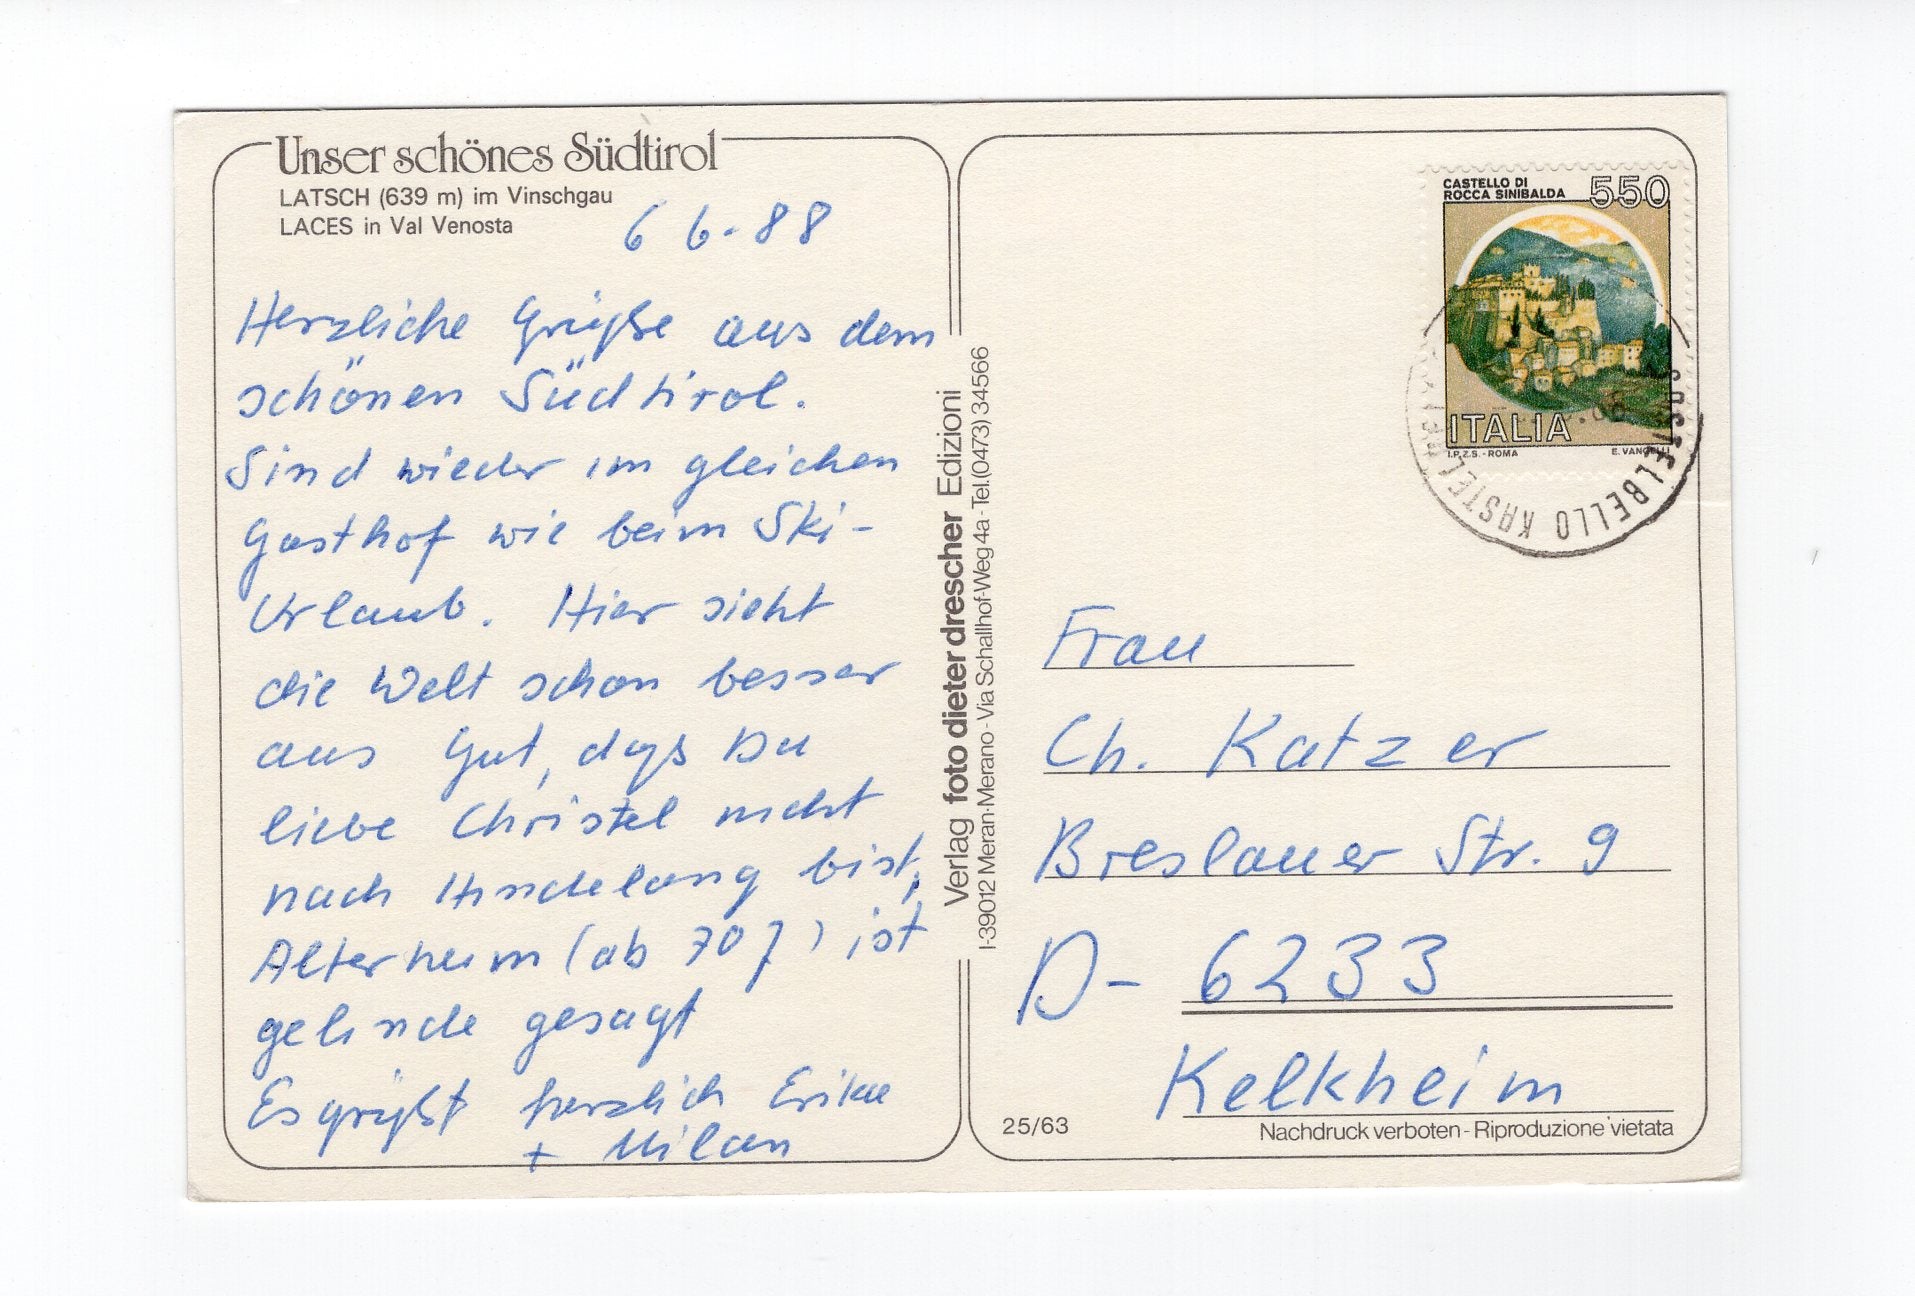 Unser schönes Südtirol
LATSCH (639 m) im Vinschgau
LACES in Val Venosta
6 6.88
Herzliche Grüße aus dem
schönen Südtirol.
Sind wieder im gleichen
Gasthof wie beim Ski-
Urlaub. Hier sieht
die Welt schon besser
aus Gut, dass Du
liebe Christel nicht
nach Hindelang bist,
Alterheim (ab 70 J) ist
gelinde gesagt
Es grüßt herzlich Erika
+ Milan
Verlag foto dieter drescher Edizioni
I-39012 Meran-Merano - Via Schallhof-Weg 4a - Tel.(0473) 34566
CASTELLO DI
ROCCA SINIBALDA
550
ITALIA
I.P.Z.S. - ROMA
KASTELBELLO
Frau
Ch. Katzer
Breslauer Str. 9
D- 6233
Kelkheim
25/63
Nachdruck verboten - Riproduzione vietata